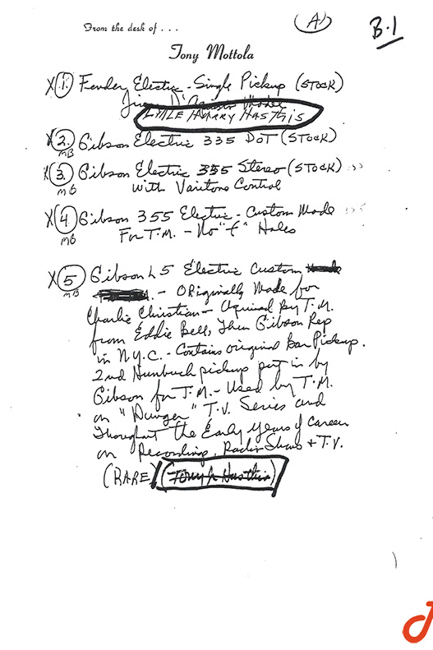 From the desk of . . .
(A)
B.1
Tony Mottola
X 1. Fender Electric - Single Pickup (STOCK)
LITLE HARRY HAS THIS
X 2. Gibson Electric 335 DOT (STOCK)
MB
X 3. Gibson Electric 355 Stereo (STOCK)
MB With Varitone Control
X 4 Gibson 355 Electric - Custom Made
MB For T.M. - No "f" Holes
X 5 Gibson L5 Electric Custom
MB - Originally Made for
Charlie Christian - Aquired By T.M.
from Eddie Bell, Then Gibson Rep
in N.Y.C. - Contains original Bar Pickup.
2nd Humbuck pickup put in by
Gibson for T.M. - Used by T.M.
on "Danger" T.V. Series and
Throughout the Early years of Career
on Recording, Radio Shows + T.V.
(RARE)